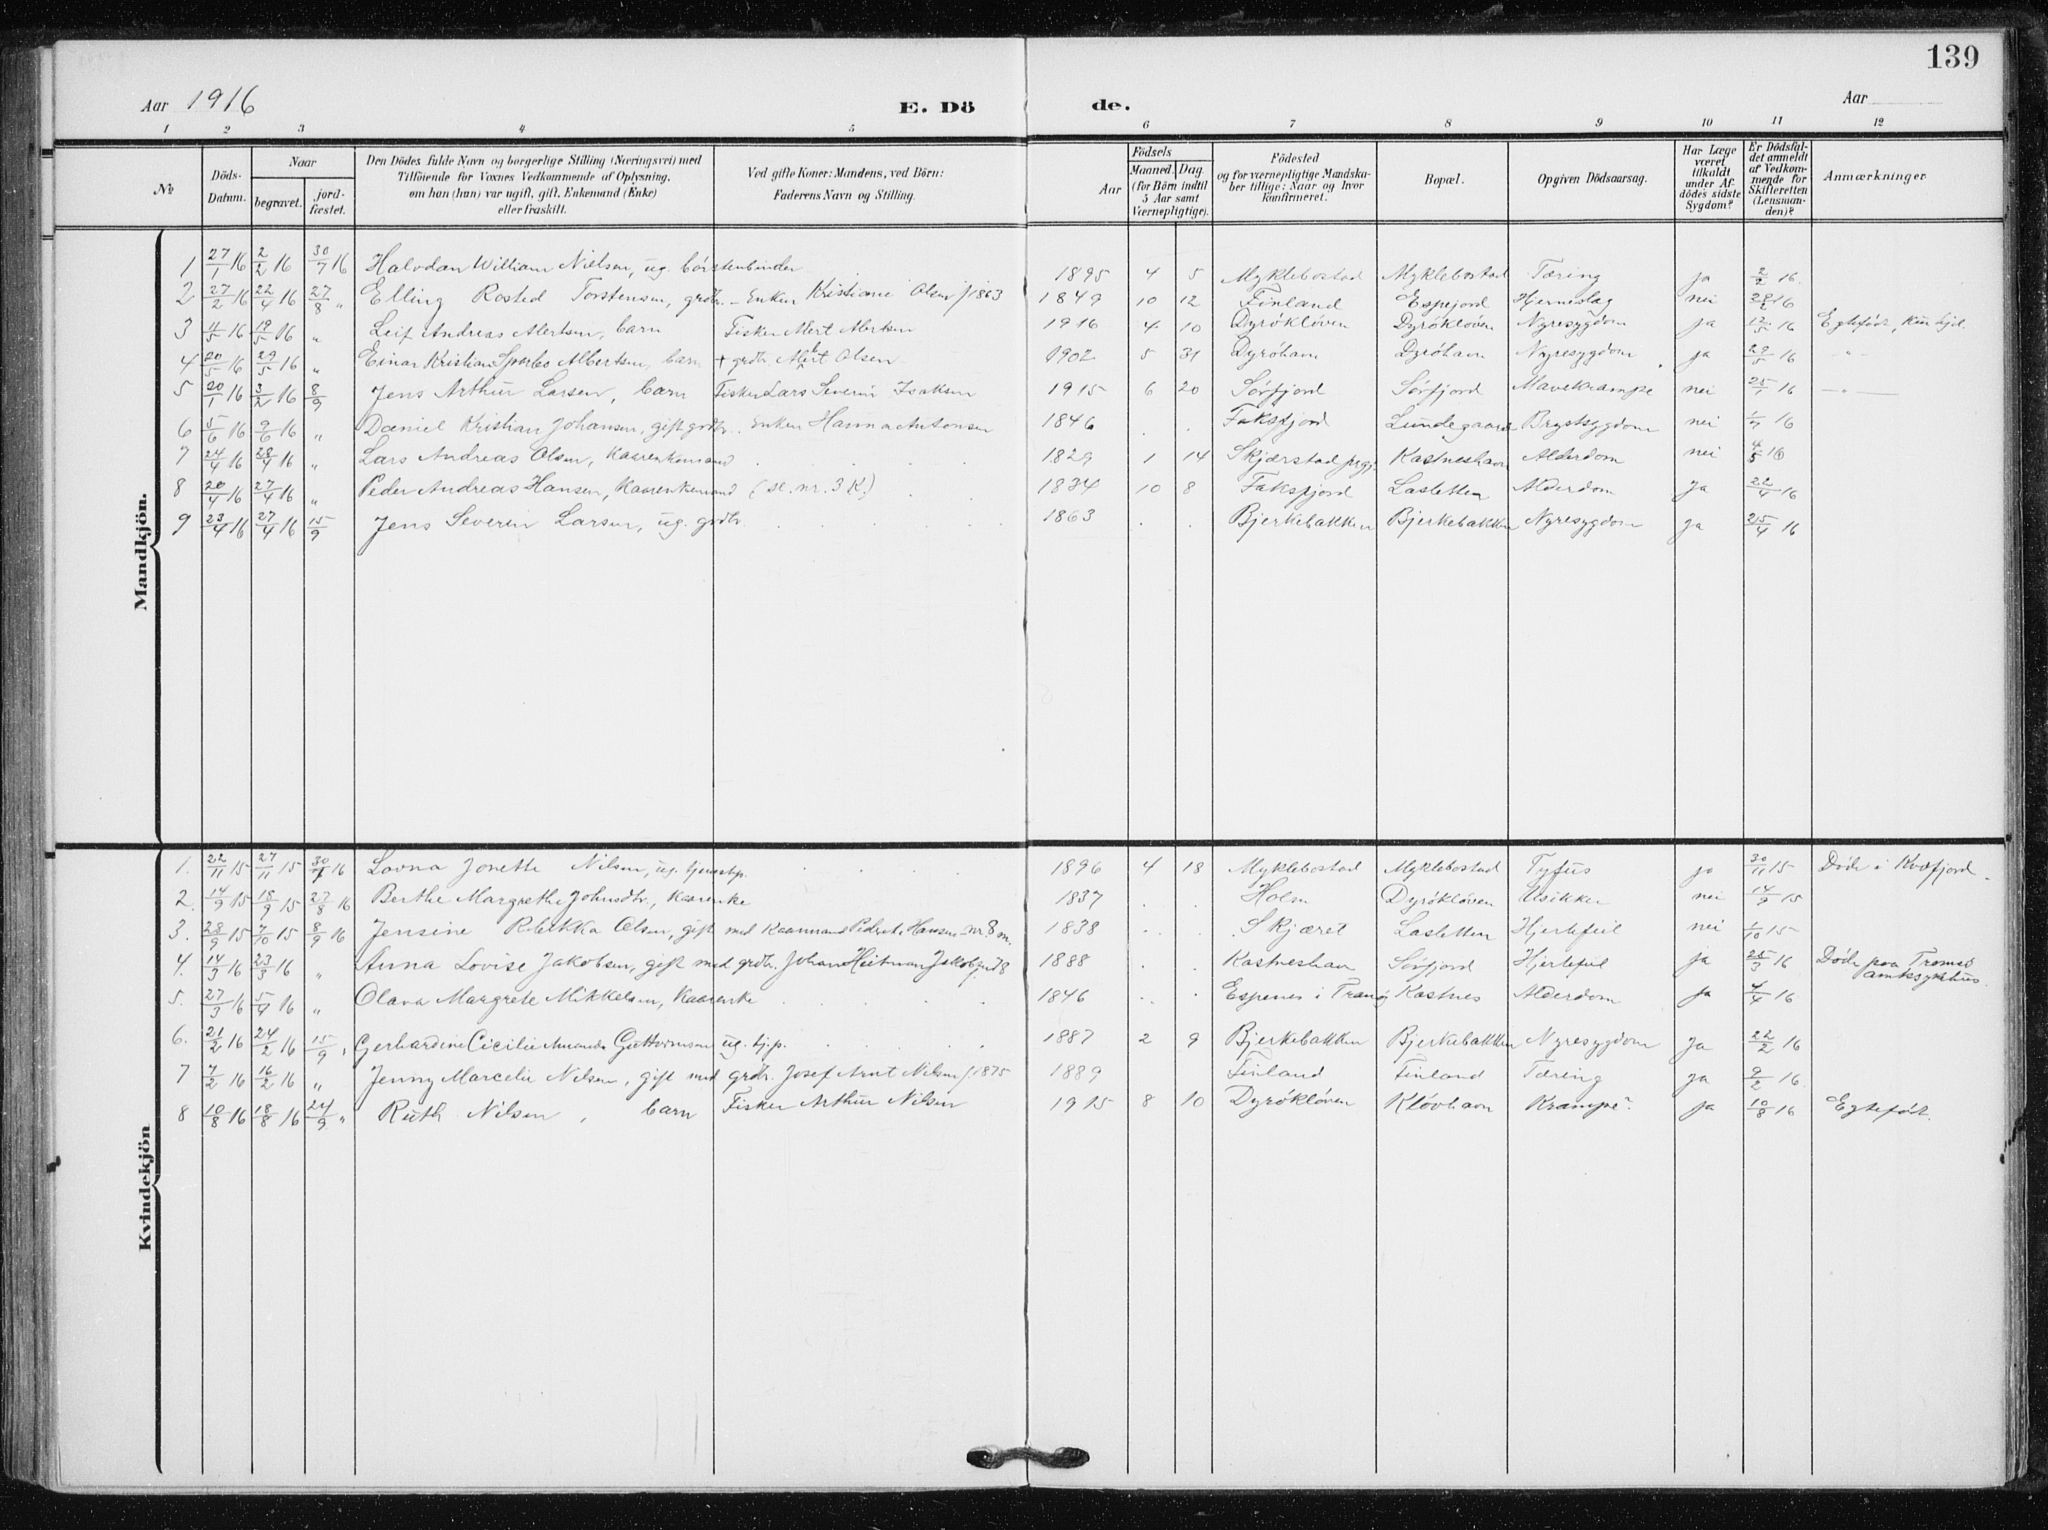 139
Aar 1916 E. Dö de. Aar
1 2 3 4 5 6 7 8 9 10 11 12
№ Döds-Datum. Naar begravet. jordfæstet. Den Dödes fulde Navn og borgerlige Stilling (Næringsvei) med Tilföiende for Voxnes Vedkommende af Oplysning, om han (hun) var ugift, gift, Enkemand (Enke) eller fraskilt. Ved gifte Koner: Mandens, ved Börn: Faderens Navn og Stilling. Aar Födsels Maaned. Dag. (for Börn indtil 5 Aar samt Værnepligtige). Födested og for værnepligtige Mandskaber tillige: Naar og hvor konfirmeret. Bopæl. Opgiven Dödsaarsag. Har Læge været tilkaldt under Afdödes sidste Sygdom? Er Dödsfaldet anmeldt af Vedkommende for Skifteretten (Lensmanden)? Anmærkninger
Mandkjön.
1 27/1 16 2/2 16 30/7 16 Halvdan William Nielsen, ug. börstenbinder 1895 4 5 Myklebostad Myklebostad Tæring ja 2/2 16
2 27/2 16 22/4 16 27/8 " Elling Rosted Torstensen, grdbr. - Enken Kristiane Olsen f 1863 1849 10 12 Finland Espejord Hjerneslag nei 28/2 16
3 11/5 16 19/5 16 " Leif Andreas Alertsen, barn Fisker Alert Alertsen 1916 4 10 Dyröklöven Dyröklöven Nyresygdom ja 17/5 16 Egtefödt
4 20/5 16 29/5 16 " Einar Kristian Sparbo Albertsen, barn + grdbr Albert Olsen 1902 5 31 Dyröhavn Dyröhavn Nyresygdom ja 29/5 16 - " -
5 20/1 16 3/2 16 8/9 Jens Arthur Larsen, barn Fisker Lars Severin Isaksen 1915 6 20 Sörfjord Sörfjord Mavekrampe nei 25/1 16 - " -
6 5/6 16 9/6 16 " Daniel Kristian Johansen, gift grdbr. Enken Hanna Antonsen 1846 . . Faksfjord Lundegaard Brystsygdom nei 16
7 24/4 16 28/4 16 " Lars Andreas Olsen, Kaarenkemand 1829 1 14 Skjærstad prgj. Kastneshavn Alderdom nei 4/5 16
8 20/4 16 27/4 16 " Peder Andreas Hansen, Kaarenkemand (se. nr. 3 K.) 1834 10 8 Faksfjord Lasletten Alderdom Ja 22/4 16
9 23/4 16 27/4 16 15/9 Jens Severin Larsen, ug. grdbr. 1863 . . Bjerkebakken Bjerkebakken Nyresygdom ja 25/4 16
Kvindekjön
1. 22/11 15 27/11 15 30/7 16 Lovna Jonette Nilsen, ug. tjenestp. 1896 4 18 Myklebostad Myklebostad Tyfus ja 30/11 15 Döde i Kvæfjord.
2. 14/9 15 18/9 15 27/8 16 Berthe Margrethe Johnsdtr., Kaarenke 1837 . . Holm Dyröklöven Usikker nei 14/9 15
3. 28/9 15 7/10 15 8/9 16 Jensine Rbekka Olsen, gift med Kaarmand Peder A. Hansen nr. 8 m. 1838 . . Skjæret Lasletten Hjertefeil nei 1/10 15
4. 14/3 16 23/3 16 " Anna Lovise Jakobsen, gift med grdbr. Johan Heitman Jakobsen f. 78 1888 . . Kastneshavn Sörfjord Hjertefeil Ja 25/3 16 Döde paa Tromsö amtssykehus.
5. 27/3 16 5/4 16 " Olava Margrete Mikkelsen, Kaarenke 1846 . . Espenes i Tranö Kastnes Alderdom Ja 4/4 16
6. 21/2 16 24/2 16 15/9 " Gerhardine Cicilie Amanda Guttormsen ug. tj.p. 1887 2 9 Bjerkebakken Bjerkebakken Nyresygdom Ja 22/2 16
7 7/2 16 16/2 16 " Jenny Marcelie Nilsen, gift med grdbr. Josef Arnt Nilsen f. 1875 1889 Finland Finland Tæring ja 9/2 16.
8 10/8 16 18/8 16 24/9 " Ruth Nilsen, barn Fisker Arthur Nilsen 1915 8 10 Dyröklöven Klövhavn Krampe? ja 10/8 16 Egtefödt.